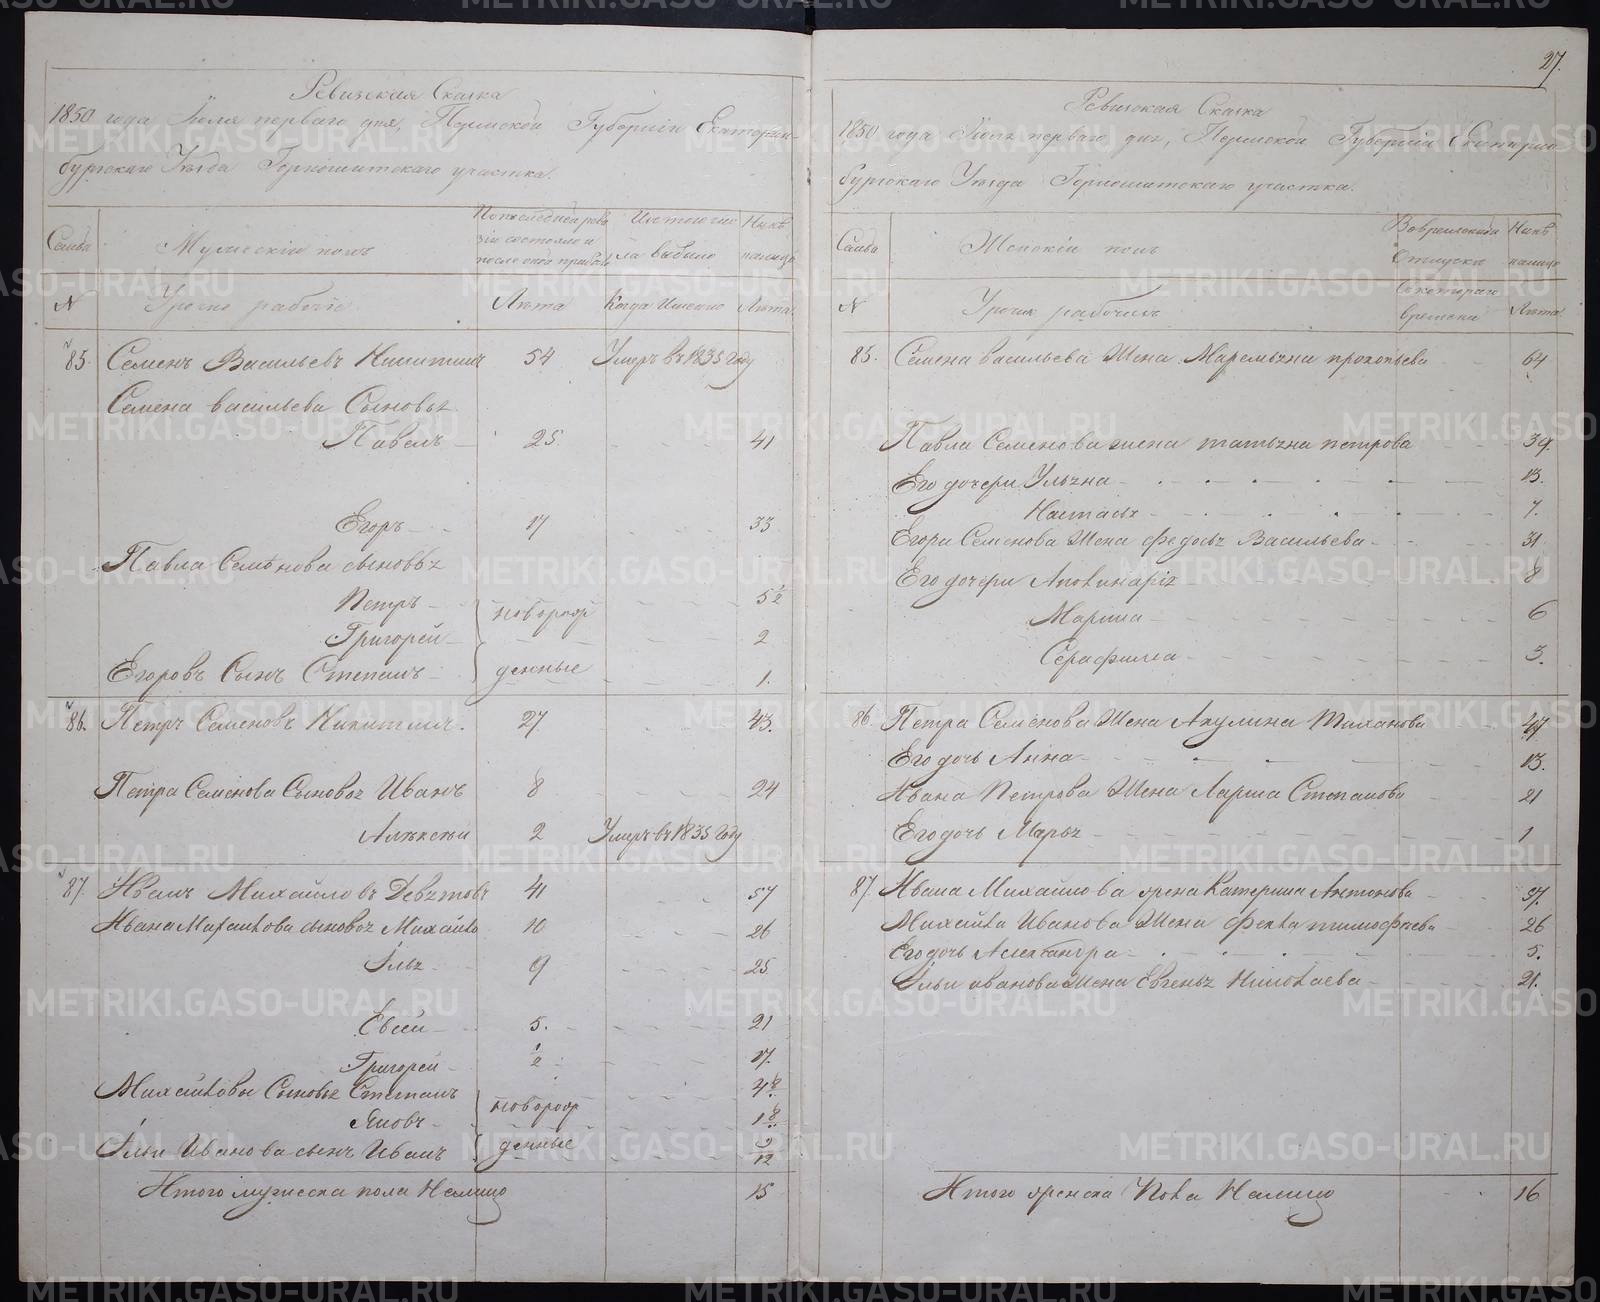 27.
Ревизская Сказка
1850 года Июля перваго дня, Пермской Губернiи Екатерин-
бургскаго Уѣзда Горнощитскаго участка.
Семьи
Мужескiй полъ
По последней реви
зiи состояло и
после оной прибыло
Изъ того чис
ла выбыло
Нынѣ
налицо
N
Урочно рабочiе
Лѣта
Когда Именно
Лѣта
85. Семенъ Васильевъ Никитинъ 54 Умеръ въ 1835 году
Семена васильева Сыновья
Павелъ 25. 41
Егоръ 17 33
Павла Семѣнова сыновья
Петръ новорож 5 1/2
Григорей 2
Егоровъ Сынъ Степанъ денные 1.
86. Петръ Семеновъ Никитинъ. 27 43.
Петра Семенова Сыновья Иванъ 8 24
Алѣксѣи 2 Умеръ въ 1835 году
87. Иванъ Михайловъ Девятовъ 41 57
Ивана Михаилова сыновья Михайло 10 26
Илья 9 25
Евсей 5. 21
Григорей 1/2 17.
Михайловы Сыновья Степанъ новорож
Яковъ
Ильи Иванова сынъ Иванъ денные 9/12
Итого мужеска пола Налицо 15
Ревизская Сказка
1850 года Июля перваго дня, Пермской Губернiи Екатерин
бургскаго Уѣзда Горнощитскаго участка.
Семьи
Женскiй полъ
Во временной
Отлучкѣ
Нынѣ
налицо
N
Урочн рабочихъ
Съ котораго
времени
Лѣта
85. Семена васильева Жена Маремьяна прокопьева 64
Павла Семенова жена татьяна петрова 39.
Его дочери Ульяна 13.
Настасья 7.
Егора Семенова Жена федосья Васильева 31
Его дочери Аполинарiя 8
Марина 6
Серафима 3.
86. Петра Семенова Жена Акулина Тиханова 47
Его дочь Анна 13.
Ивана Петрова Жена Ларина Степанова 21
Его дочь Марья 1
87. Ивана Михайлова жена Катерина Антонова 57.
Михайла Иванова Жена фекла тимофеева 26
Его дочь Александра 5.
Ильи иванова Жена Евгенья Николаева 21.
Итого женска Пола Налицо 16
METRIKI.GASO-URAL.RU